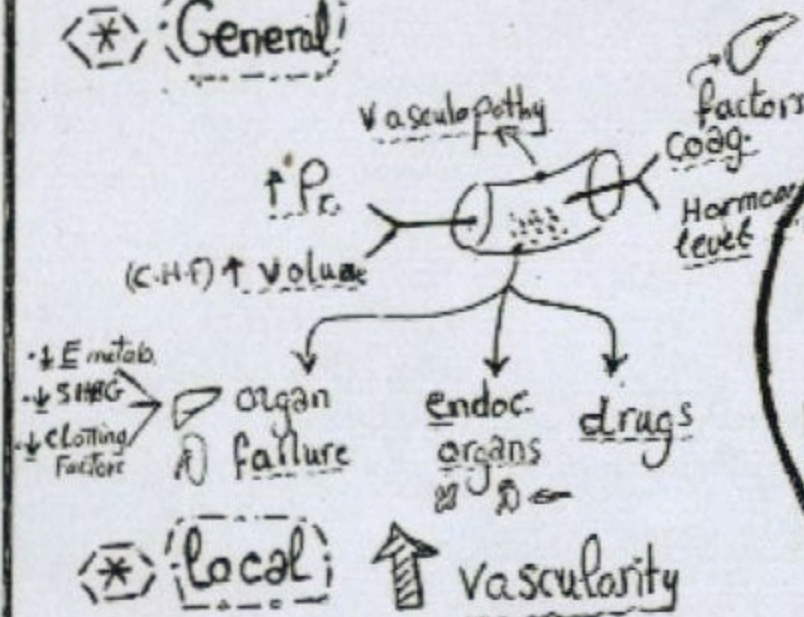 * General
vasculopathy
factors
coag.
↑ Pr.
Hormon
level
(C.H.F) ↑ volume
↓ E metab.
↓ SHBG
↓ Clotting
Factors
organ
failure
endoc.
organs
drugs
* local ↑ vascularity